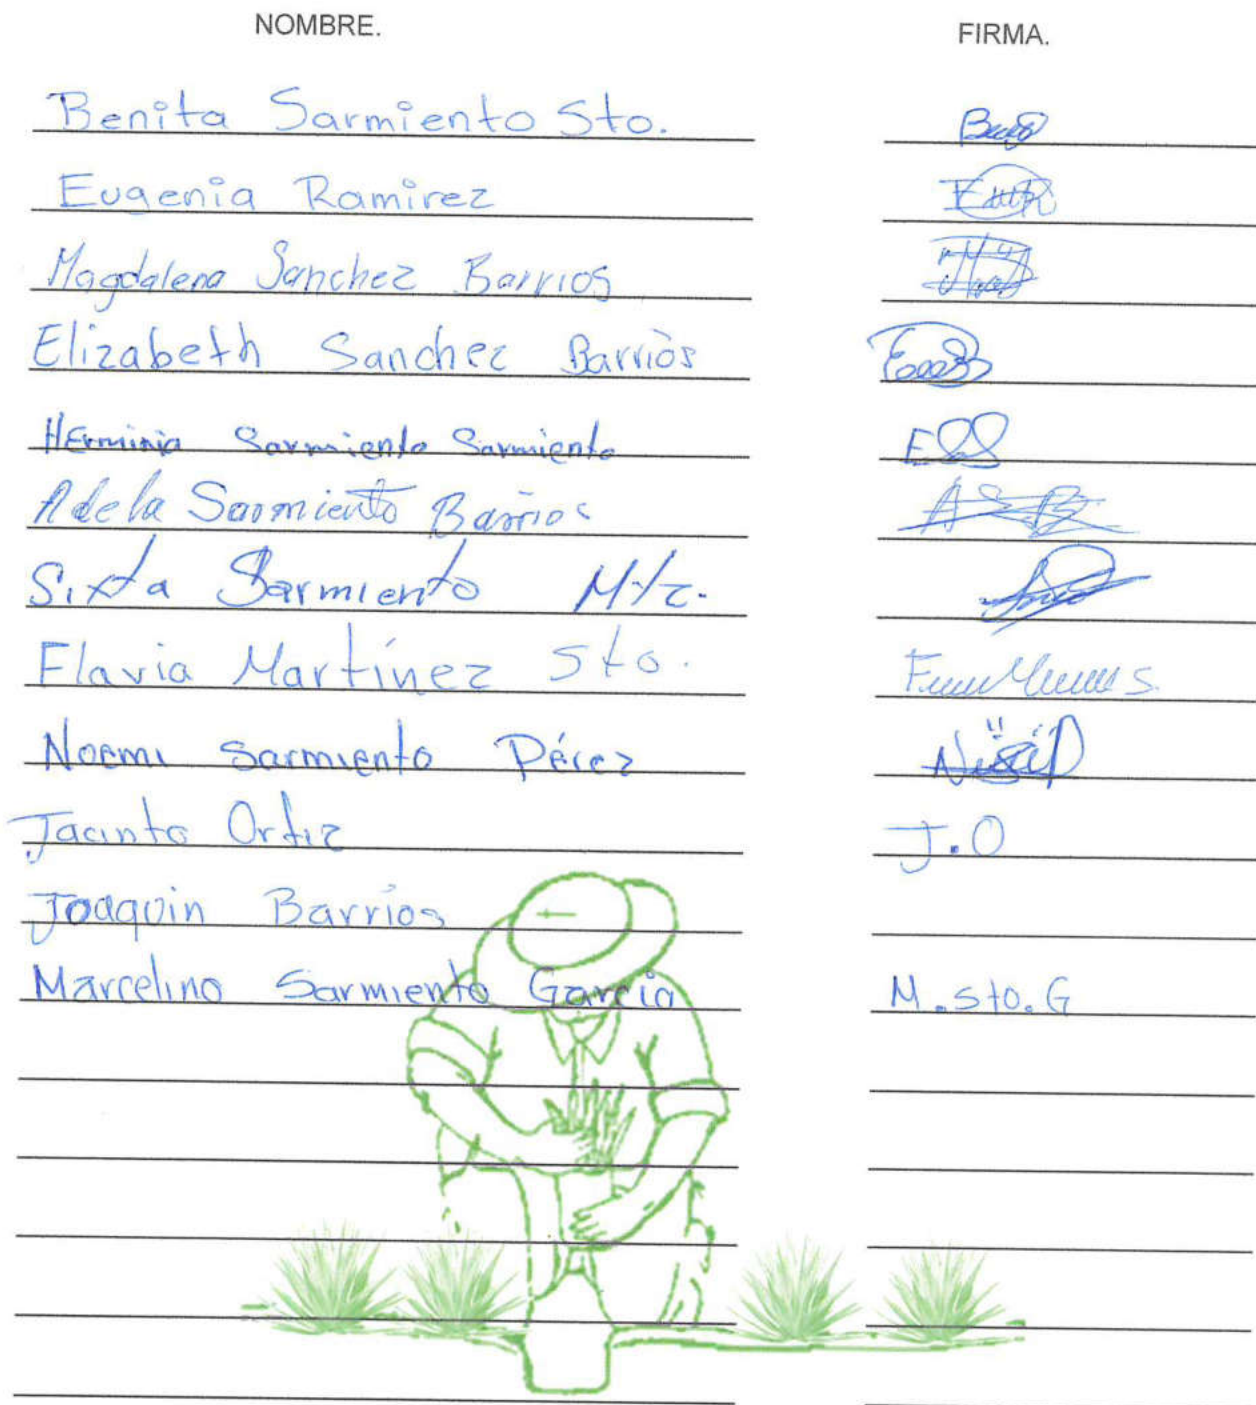 NOMBRE. FIRMA.
Benita Sarmiento Sto.
Eugenia Ramirez
Magdalena Sanchez Barrios
Elizabeth Sanchez Barriòs
HErminia Sarmiento Sarmiento
Adela Sarmiento Barrios
Sixta Sarmiento Mtz.
Flavia Martínez Sto.
Noemi Sarmiento Pérez
Jacinto Ortiz J.O
Joaquin Barrios
Marcelino Sarmiento Garcia M.sto.G